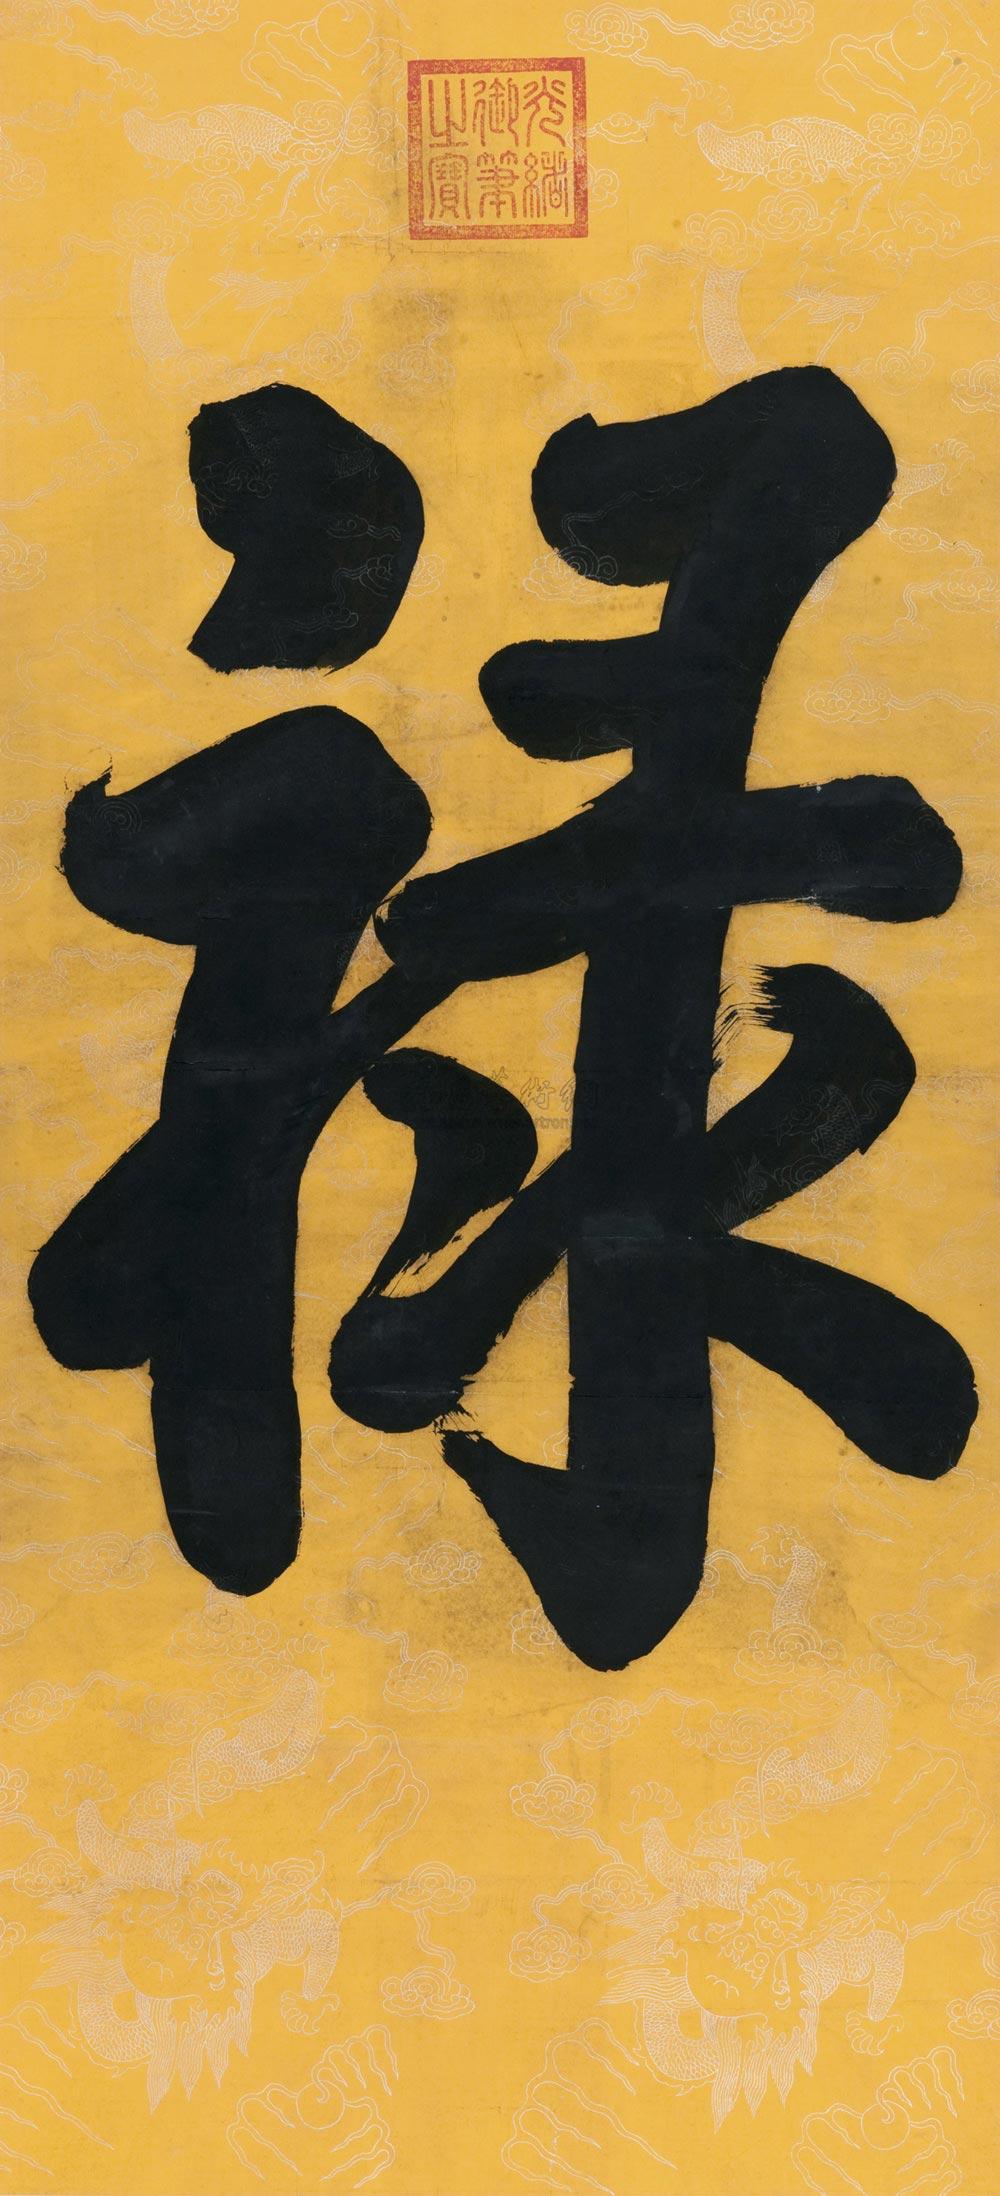 光緒
御筆
之寶
禄